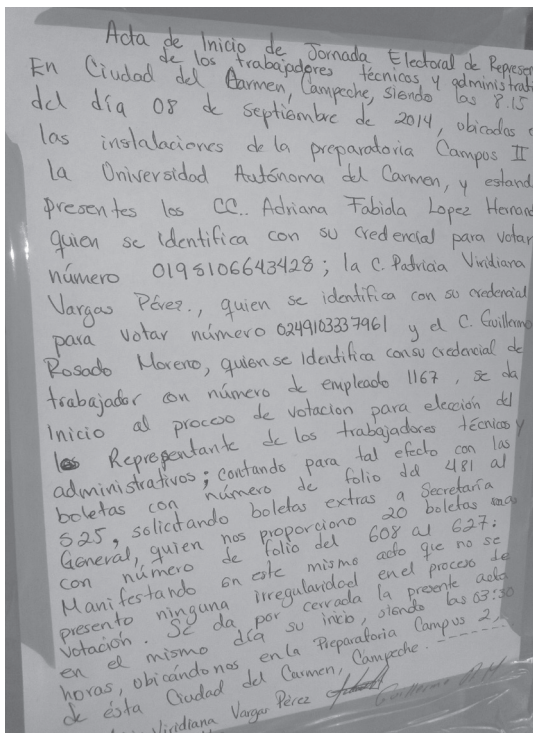 Acta de Inicio de Jornada Electoral de Represen
de los trabajadores técnicos y administrat
En Ciudad del Carmen, Campeche, siendo las 8.15
del día 08 de septiembre de 2014, obicados e
las instalaciones de la preparatoria Campus II
la Universidad Autónoma del Carmen, y estand
presentes los CC.. Adriana Fabiola Lopez Hernand
quien se identifica con su credencial para votar
número 0198106643428; la C. Patricia Viridiana
Vargas Pérez., quien se identifica con su credencial
para votar número 0249103337961 y el C. Guillermo
Rosado Moreno, quien se identifica con su credencial de
trabajador con número de empleado 1167, se da
Inicio al proceso de votacion para elección del
Representante de los trabajadores técnicos y
administrativos; contando para tal efecto con las
boletas con número de folio del 481 al
525, solicitando boletas extras a Secretaría
General, quien nos proporciono 20 boletas mas
con número de folio del 608 al 627.
Manifestando en este mismo acto que no se
presento ninguna irregularidad en el proceso de
Votación. Se da por cerrada la presente acta
en el mismo día su inicio, siendo las 03:30
horas, obicándonos en la Preparatoria Campus 2,
de ésta Ciudad del Carmen, Campeche.------
Viridiana Vargas Pérez Guillermo